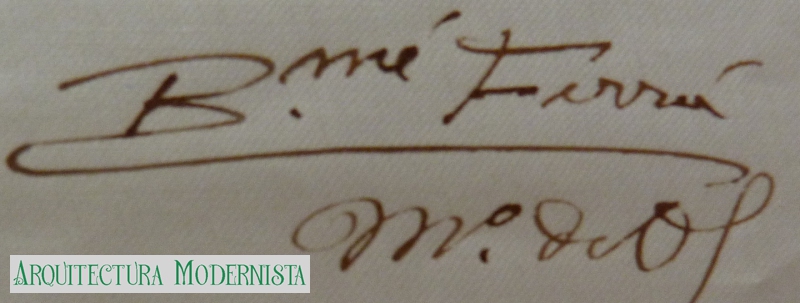 B.mé Ferrá
Mº. de O.
ARQUITECTURA MODERNISTA